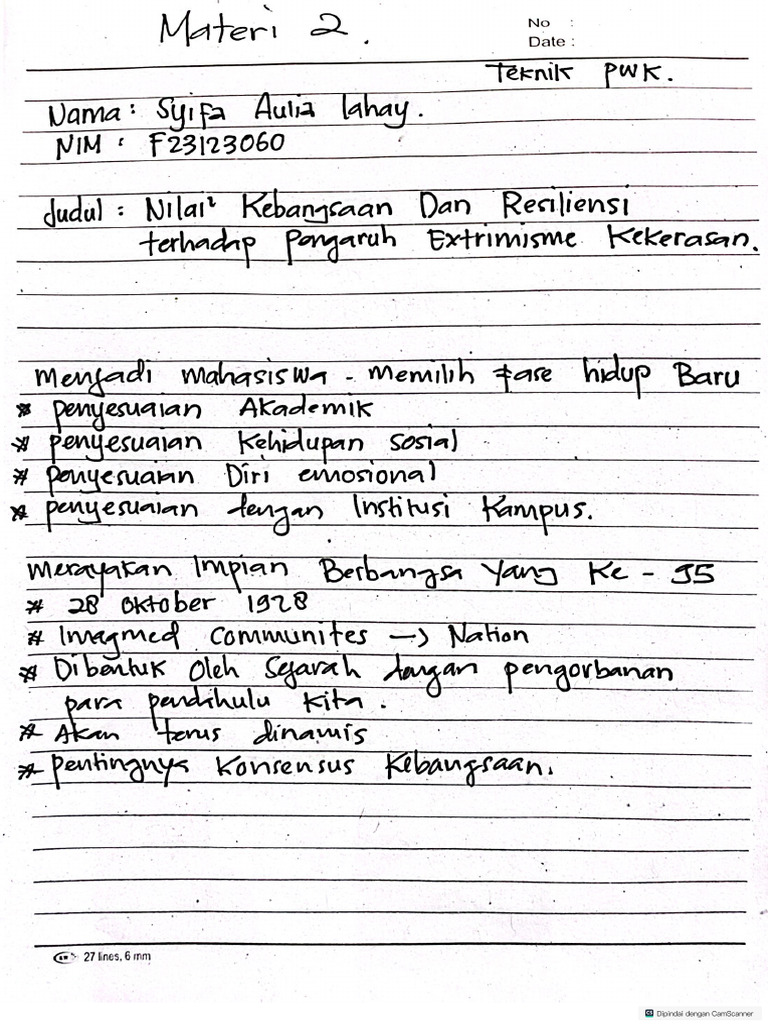 Materi 2.
No :
Date :
Teknik PWK.
Nama : Syifa Aulia lahay.
NIM : F23123060
Judul : Nilai² Kebangsaan Dan Resiliensi
terhadap Pengaruh Extrimisme Kekerasan.
menjadi mahasiswa - memilih fase hidup Baru
* penyesuaian Akademik
* penyesuaian Kehidupan sosial
* penyesuaian Diri emosional
* penyesuaian dengan Institusi Kampus.
merayakan Impian Berbangsa Yang Ke - 95
* 28 Oktober 1928
* Imagmed communites -> Nation
* Dibentuk Oleh Sejarah dengan pengorbanan
para pendihulu Kita.
* Akan terus dinamis
* pentingnya Konsensus Kebangsaan.
27 lines, 6 mm
CS Dipindai dengan CamScanner